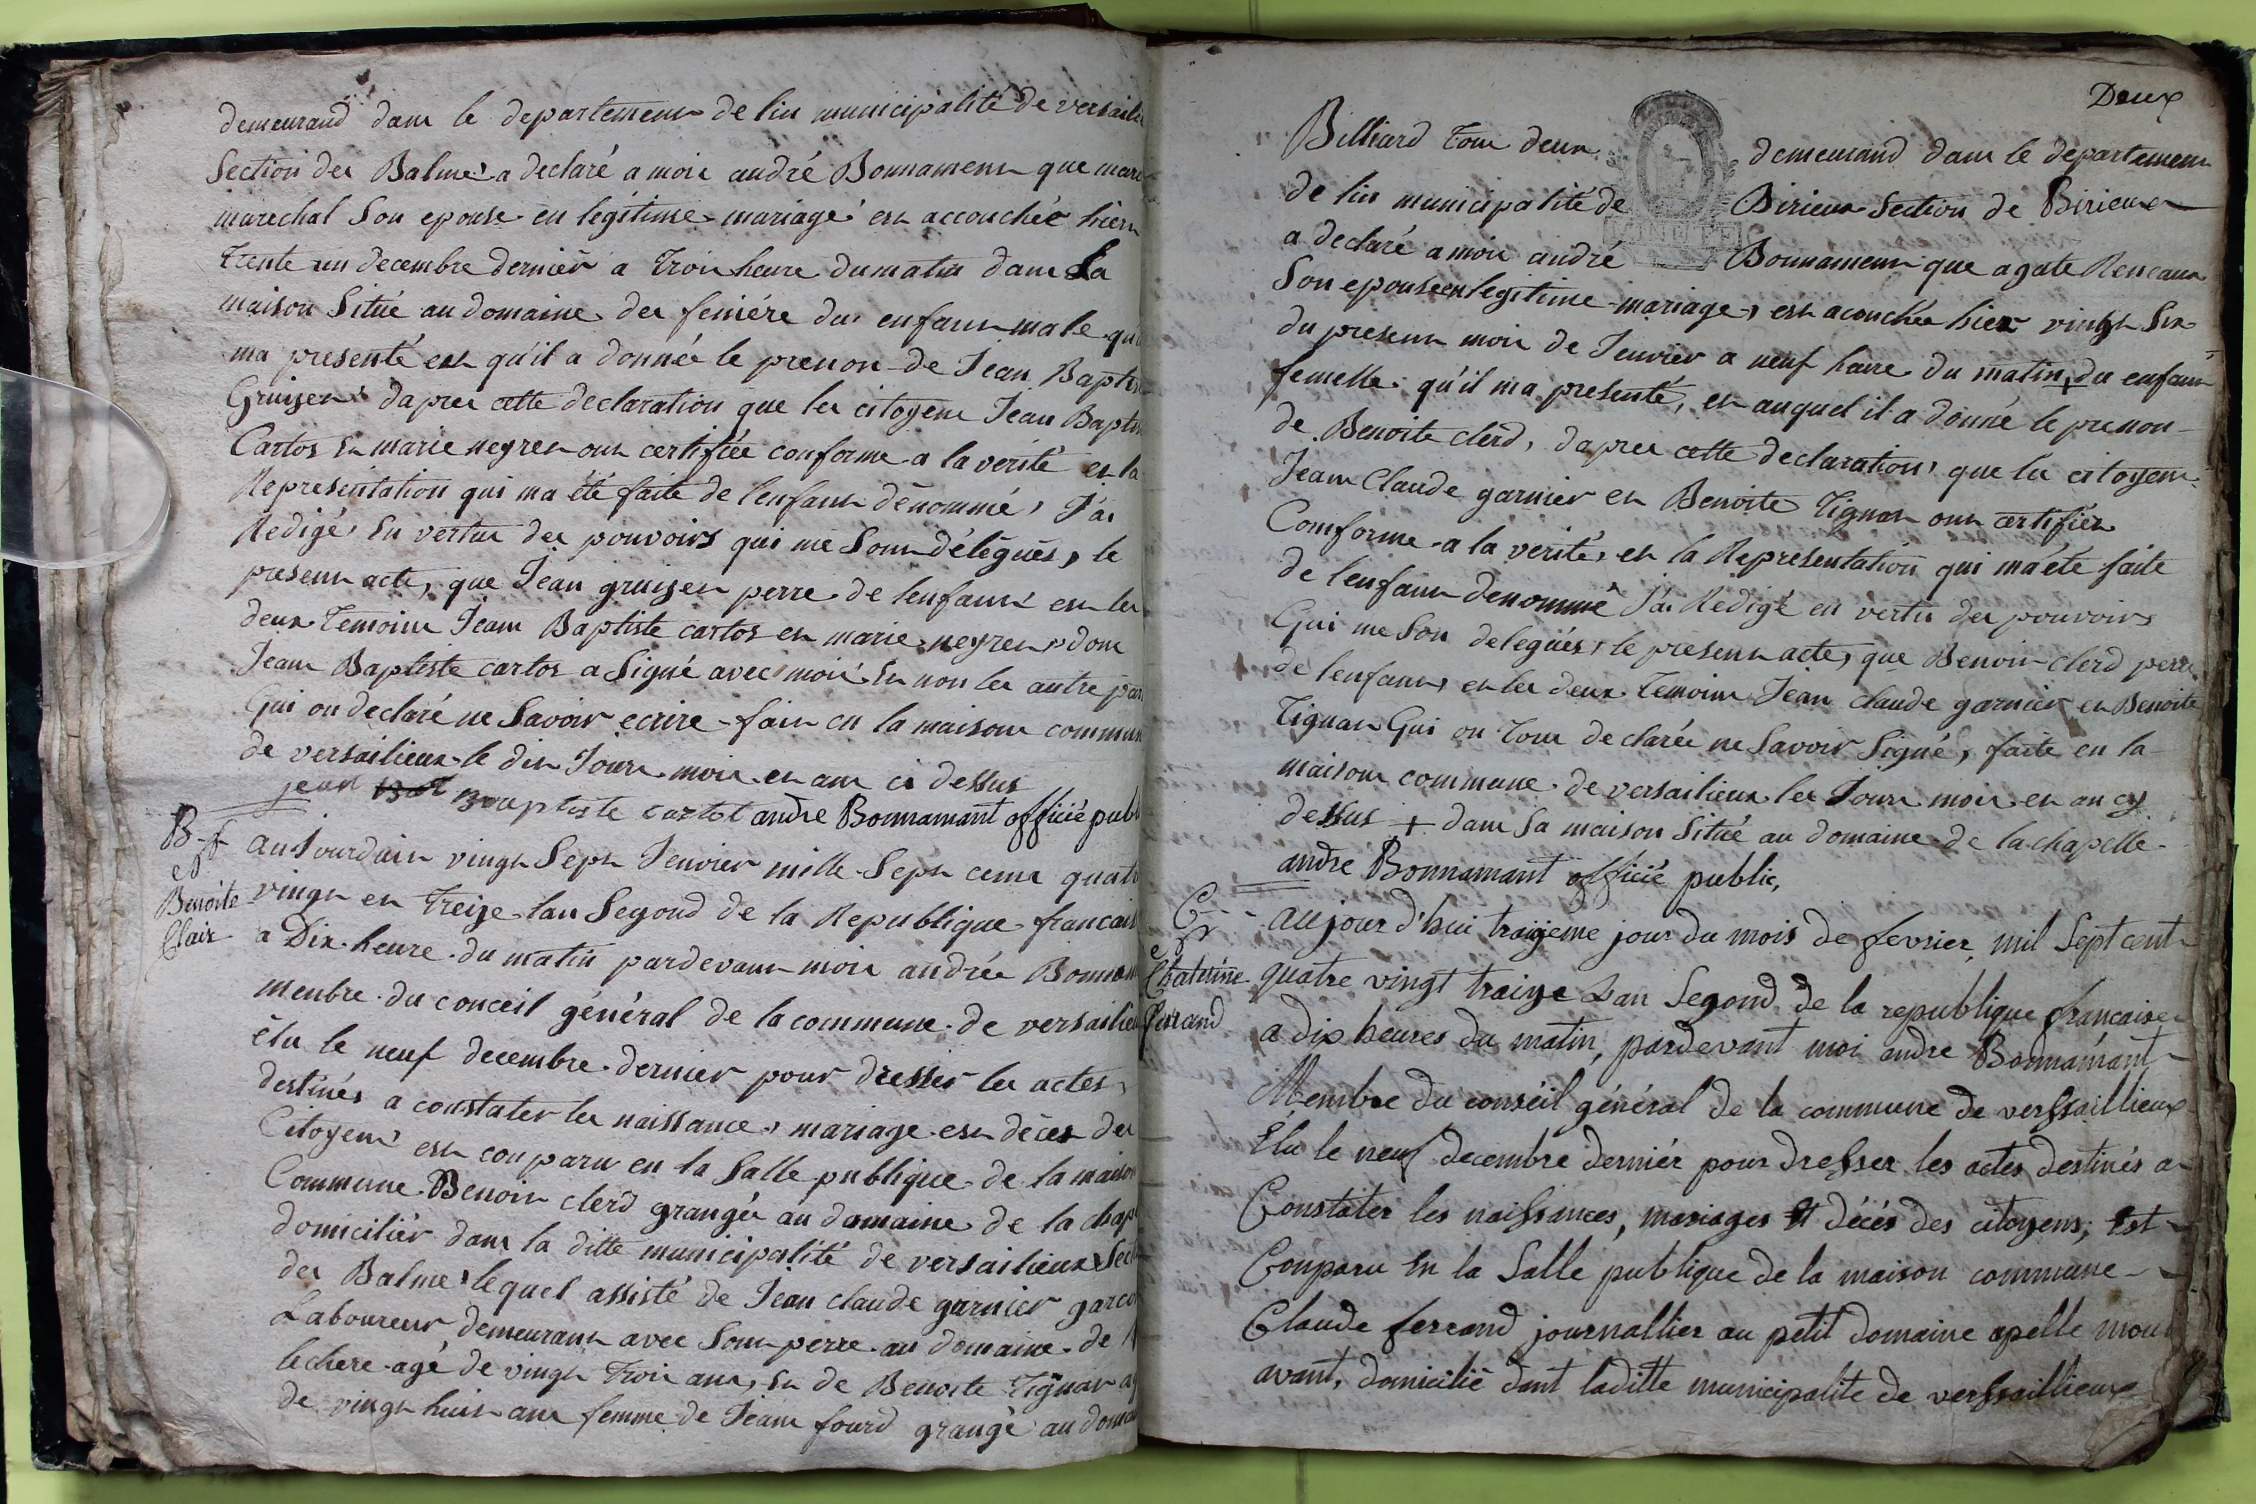 demeurand dans le departement de lin municipalité de versailie
Section des Balmes a declaré a moi andré Bonnament que marie
marechal Son epouse en légitime mariage est accouchée hiere
Trente un decembre dernier a troi heure du matin dans La
maison Situé au domaine des feniére du enfant male qui
ma presenté et qu'il a donnée le prenon de Jean Baptis
Gruisen dapres cette declaration que les citoyens Jean Baptis
Cartos et marie neyret ont certifiée conforme a la verité et la
Representation qui ma été faite de lenfant dénommé, J'ai
Redigé, En vertue des pouvoirs qui me Sont délégués, le
present acte, que Jean gruisen perre de lenfant et les
deux temoins Jean Baptiste cartos et marie neyret, dont
Jean Baptiste cartos a Signé avec moi et non les autre par
Qui on declaré ne Savoir ecrire fait en la maison commun
de versailieux le dix Jour moi et an ci dessus
jean Bat Bauptiste cartot andre Bonnamant officié publ
B-f
et
Benoite
Clair
aujourduit vingt Sept Jenvier mille Sept cent quatr
vingt et Treize lan Segond de la Republique francais
a Dix heure du matin pardevant moi andrée Bonnam
menbre du conceil général de la commune de versailieu
élu le neuf decembre dernier pour dresser les actes
destinés a constater les naissance, mariage et décès des
Citoyens est conparu en la Salle publique de la maison
Commune Benoit clerd grangé au domaine de la chap
domicilier dans la ditte municipalité de versailieux Sec
des Balmes lequel assisté de Jean claude garnier garcon
Laboureur demeurant avec Sont perre au domaine de
lechere agé de vingt troi ans, et de Benoite Tignat ag
de vingt huit ans femme de Jean fourd grangé au domai
Deux
Billiard tous deux demeurand dans le departement
de lin municipalité de Birieux Section de Birieux
a declaré a moi andré Bonnament que agate Reneaux
Son epouse en legitime mariage, est acouchée hier vingt Six
du present moi de Jenvier a neuf heure du matin, + du enfant
femelle qu'il ma presenté, et auquel il a donné le prenon
de Benoite clerd, dapres cette declaration, que les citoyens
Jean Claude garnier et Benoite Tignat ont certifiér
Comforme a la verité, et la Representation qui ma été faite
de lenfant denommé J'ai Redigé en vertu des pouvoirs
Qui me Son delegués, le present acte, que Benoit clerd perre
de lenfant, et les deux Temoins Jean claude garnier et Benoite
Tignat Qui on tous declarée ne Savoir Signé, faite en la
maison commune de versailieux les Jour moi et an cy
dessus + dans Sa maison Situé au domaine de la chapelle
andre Bonnamant officié public,
Chaterine
ferrand
aujourd'hui traizieme jour du mois de fevrier, mil Sept cent
quatre vingt traize Lan Segond de la republique francaise
a dix heures du matin, pardevant moi andre Bonnamant
Membre du conséil général de la commune de verssaillieux
Elu le neuf decembre derniér pour dresser les actes destinés a
Constater les naissances, mariages Et décés des citoyens, Est
Conparu En la Salle publique de la maison commune
Claude ferrand journallier au petit domaine apelle mou
avant, domicilié dant laditte municipalite de verssaillieux